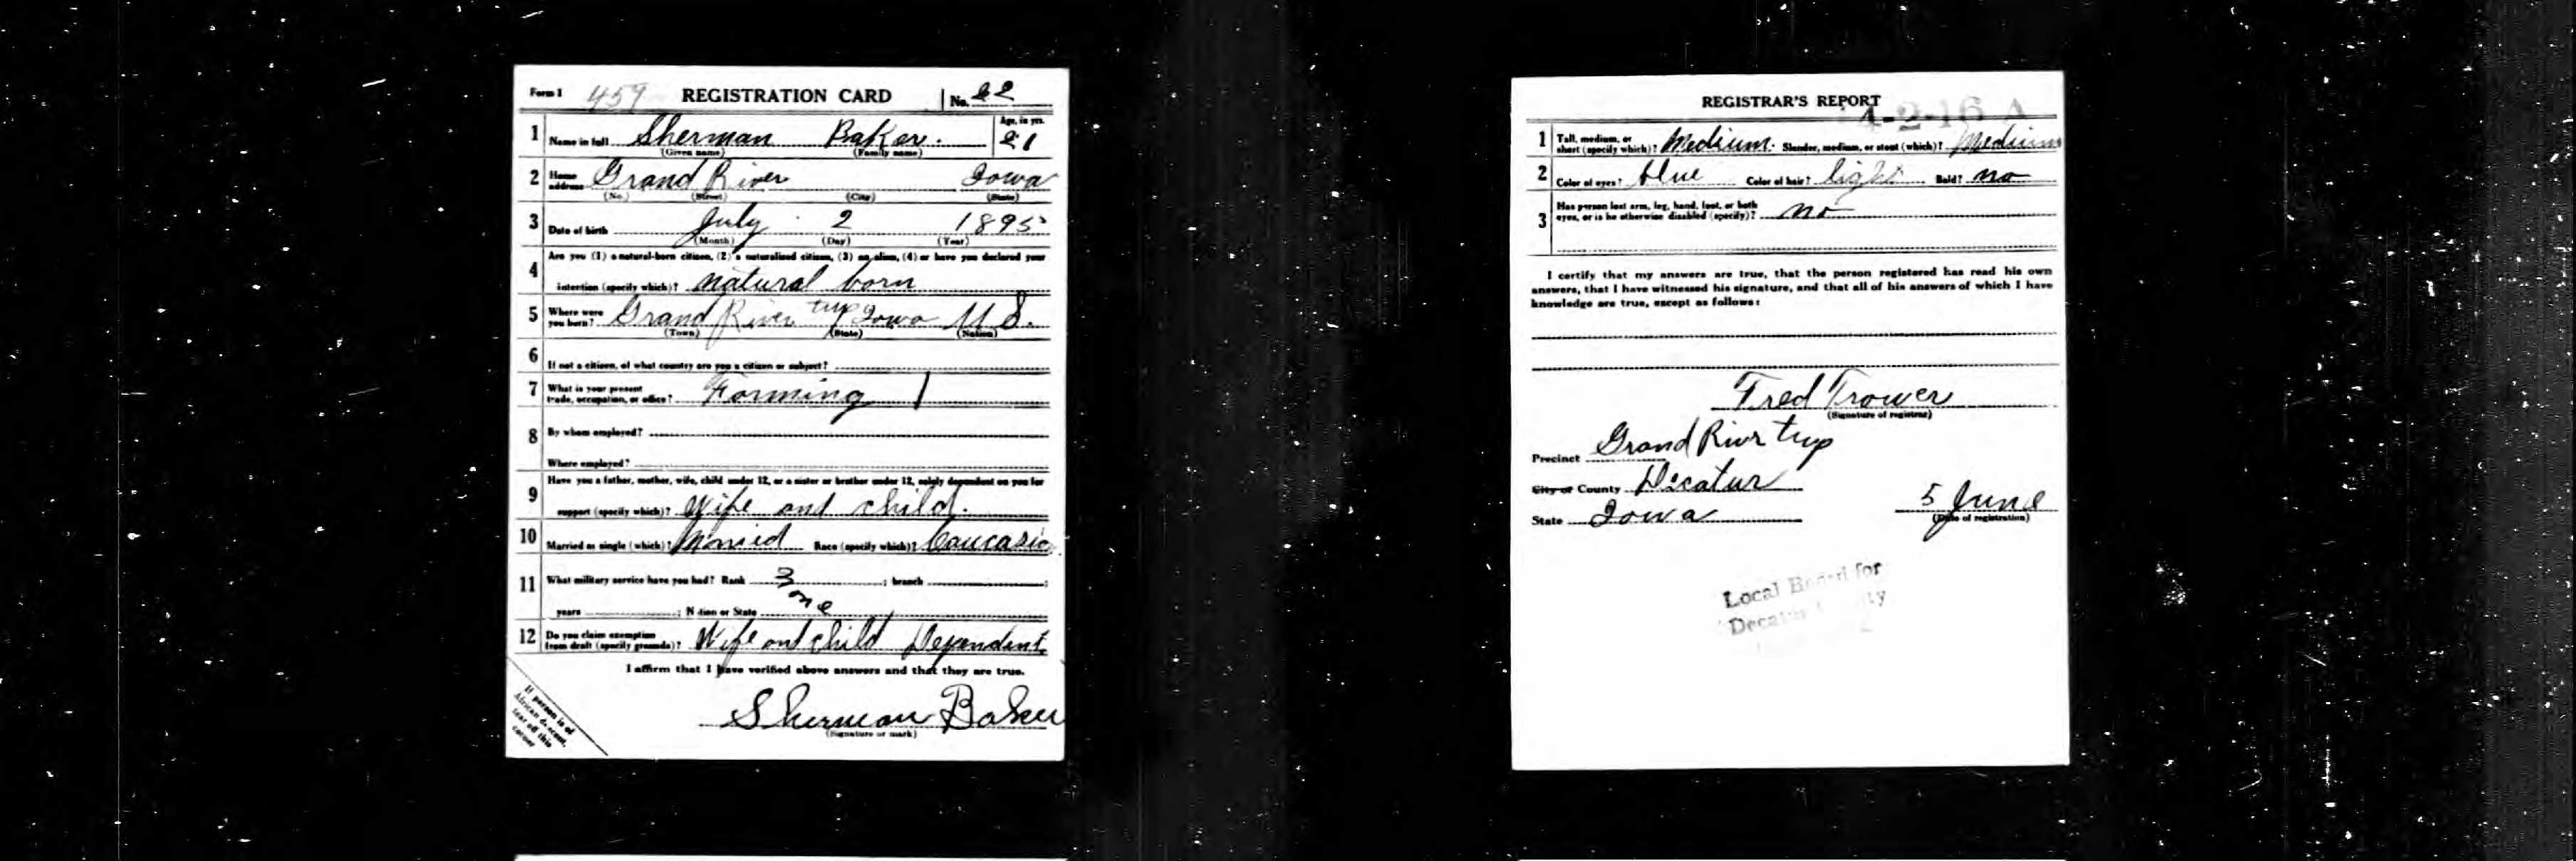 Form 1 459 REGISTRATION CARD No. 22
1 Name in full Sherman Baker. Age, in yrs. 21
(Given name) (Family name)
2 Home address Grand River Iowa
(No.) (Street) (City) (State)
3 Date of birth July 2 1895
(Month) (Day) (Year)
4 Are you (1) a natural-born citizen, (2) a naturalized citizen, (3) an alien, (4) or have you declared your
intention (specify which)? natural born
5 Where were you born? Grand River twp Iowa U.S.
(Town) (State) (Nation)
6 If not a citizen, of what country are you a citizen or subject?
7 What is your present trade, occupation, or office? Farming
8 By whom employed?
Where employed?
9 Have you a father, mother, wife, child under 12, or a sister or brother under 12, solely dependent on you for
support (specify which)? Wife and child.
10 Married or single (which)? Married Race (specify which)? Caucasic
11 What military service have you had? Rank ; branch ;
years ; Nation or State
12 Do you claim exemption from draft (specify grounds)? Wife and child Dependent.
I affirm that I have verified above answers and that they are true.
Sherman Baker
(Signature or mark)
If person is of
African descent,
tear off this
corner
REGISTRAR'S REPORT
1 Tall, medium, or short (specify which)? Medium. Slender, medium, or stout (which)? Medium
2 Color of eyes? blue Color of hair? light Bald? no
3 Has person lost arm, leg, hand, foot, or both eyes, or is he otherwise disabled (specify)? no
I certify that my answers are true, that the person registered has read his own
answers, that I have witnessed his signature, and that all of his answers of which I have
knowledge are true, except as follows:
Fred Trower
(Signature of registrar)
Precinct Grand River twp
City or County Decatur
State Iowa
5 June
(Date of registration)
Local Board for